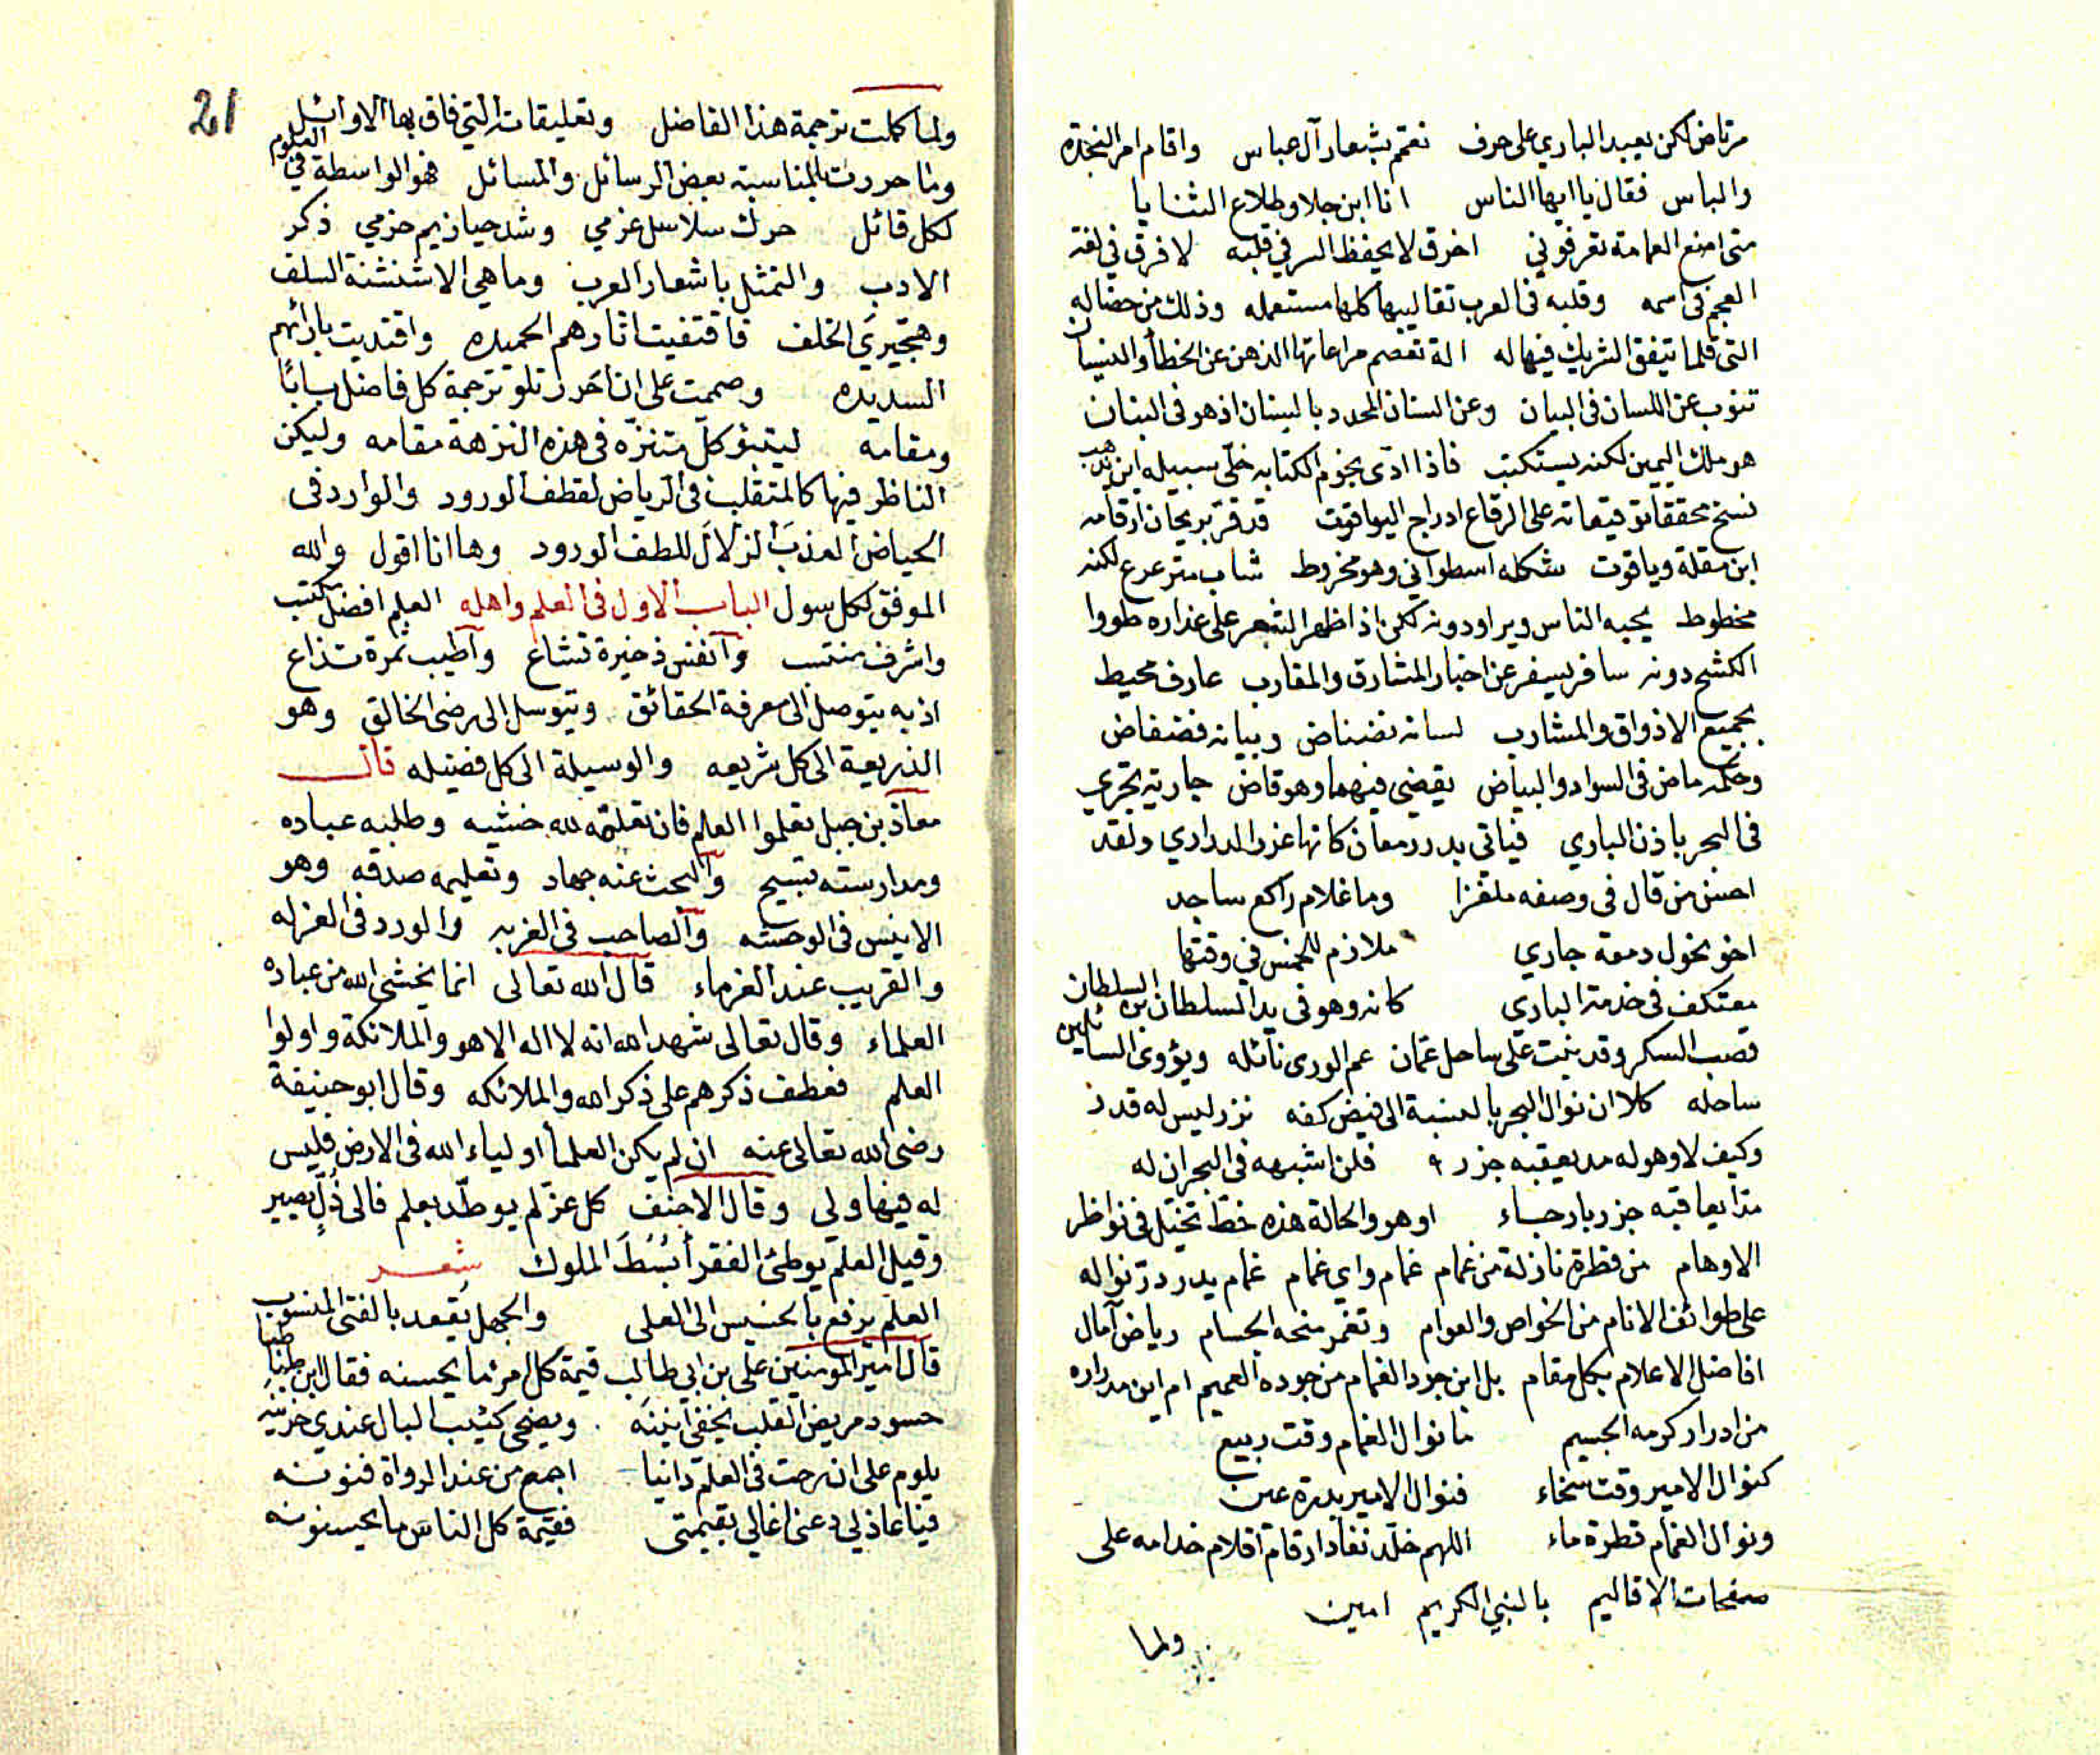 مرتاض لكن يعبد الباري على حرف تعمم بشعار آل عباس واقام امر النجدة
والباس فقال يا ايها الناس انا ابن جلا وطلاع الثنايا
متى اضع العمامة تعرفوني اخرق لا يحفظ السر في قلبه لا فرق في لغة
العجم في اسمه وقلبه في العرب تقاليبها كلها مستعمله وذلك من خصاله
التي قلما يتفق الشريك فيها له الة تعصم مراعاتها الذهن عن الخطأ والنسيان
تنوب عن اللسان في البيان وعن السنان المحدد بالبنان اذ هو في البنان
هو ملك اليمين لكنه يستكتب فاذا ادى نجوم الكتابه خلّى سبيله اين يذهب
نسخ محققا توقيعاته على الرقاع ادراج اليواقيت قد قرّ بريحان ارقامه
ابن مقلة وياقوت شكله اسطواني وهو مخروط شاب مترعرع لكنه
مخطوط يحبه الناس ويراودونه لكن اذا ظهر الشعر على عذاره طووا
الكشح دونه سافر يسفر عن اخبار المشارق والمغارب عارف محيط
بجميع الاذواق والمشارب لسانه نضناض وبيانه فضفاض
وحكمه ماض في السواد والبياض يقضي فيهما وهو قاض جارية تجري
في البحر باذن الباري فياتي بدرر معان كانها غرر الدراري ولقد
احسن من قال في وصفه ملغزا وما غلام راكع ساجد
اخو نحول دمعه جاري ملازم للخمس في وقتها
معتكف في خدمة الباري كانه وهو في يد السلطان بن السلطان
قصب السكر وقد نبت على ساحل عمان عم الورى نائله ويؤوى السايلين
ساحله كلا ان نوال البحر بالنسبة الى فيض كفه نزر ليس له قدر
وكيف لا وهو له مد يعقبه جزر فلن اشبهه في البحر ان له
مدا يعاقبه جزر بارجاء او هو والحالة هذه خط تخيّل في نواظر
الاوهام من قطرة نازلة من غمام غمام واي غمام غمام يدر درّ نواله
على طوائف الانام من الخواص والعوام وتغمر منحه الجسام رياض آمال
افاضل الاعلام بكل مقام بل اين جود الغمام من جوده العميم ام اين مدراره
من ادرار كرمه الجسيم ما نوال الغمام وقت ربيع
كنوال الامير وقت سخاء فنوال الامير بدرة عين
ونوال الغمام قطرة ماء اللهم خلّد نفاذ ارقام اقلام خدامه على
صفحات الاقاليم بالنبي الكريم امين
ولما
21
ولما كملت ترجمة هذا الفاضل وتعليقاته التي فاق بها الاوائل
وما حررت بالمناسبة بعض الرسائل والمسائل فهو الواسطة في العلوم
لكل قائل حرك سلاسل عزمي وشد حيازيم حزمي ذكر
الادب والتمثل باشعار العرب وما هي الا شنشنة السلف
وهجيرى الخلف فاقتفيت اثارهم الحميده واقتديت بارائهم
السديده وصممت على ان احرر تلو ترجمة كل فاضل بابًا
ومقامة ليتبؤ كل متنزّه في هذه النزهة مقامه وليكن
الناظر فيها كالمتقلب في الرياض لقطف الورود والوارد في
الحياض العذبَ الزلالَ للطف الورود وها انا اقول والله
الموفق لكل سول الباب الاول في العلم واهله العلم افضل مكتسب
واشرف منتسب وانفس ذخيرة تشاع وأطيب ثمرة تذاع
اذ به يتوصل الى معرفة الحقائق ويتوسل الى رضى الخالق وهو
الذريعة الى كل شريعه والوسيلة الى كل فضيله قال
معاذ بن جبل تعلموا العلم فان تعلمه لله خشيه وطلبه عباده
ومدارسته تسبيح والبحث عنه جهاد وتعليمه صدقه وهو
الانيس في الوحشه والصاحب في الغربه والورد في العزله
والقريب عند الغرماء قال الله تعالى انما يخشى الله من عباده
العلماء وقال تعالى شهد الله انه لا اله الا هو والملائكة واولوا
العلم فعطف ذكرهم على ذكر الله والملائكه وقال ابو حنيفة
رضي الله تعالى عنه ان لم يكن العلما اولياء الله في الارض فليس
له فيها ولي وقال الاحنف كل عزّ لم يوطّد بعلم فالى ذُلٍّ يصير
وقيل العلم يوطئ الفقر أبسُطَ الملوك شعر
العلم يرفع بالخسيس الى العلى والجهل يقعد بالفتى المنسوب
قال امير المومنين علي بن ابي طالب قيمة كل امرئ ما يحسنه فقال ابن طباطبا
حسود مريض القلب يخفى انينه ويضحى كئيب البال عندي حزينه
يلوم على ان رحت في العلم دانيا اجمع من عند الرواة فنونه
فيا عاذلي دعني اغالي بقيمتي فقيمة كل الناس ما يحسنونه